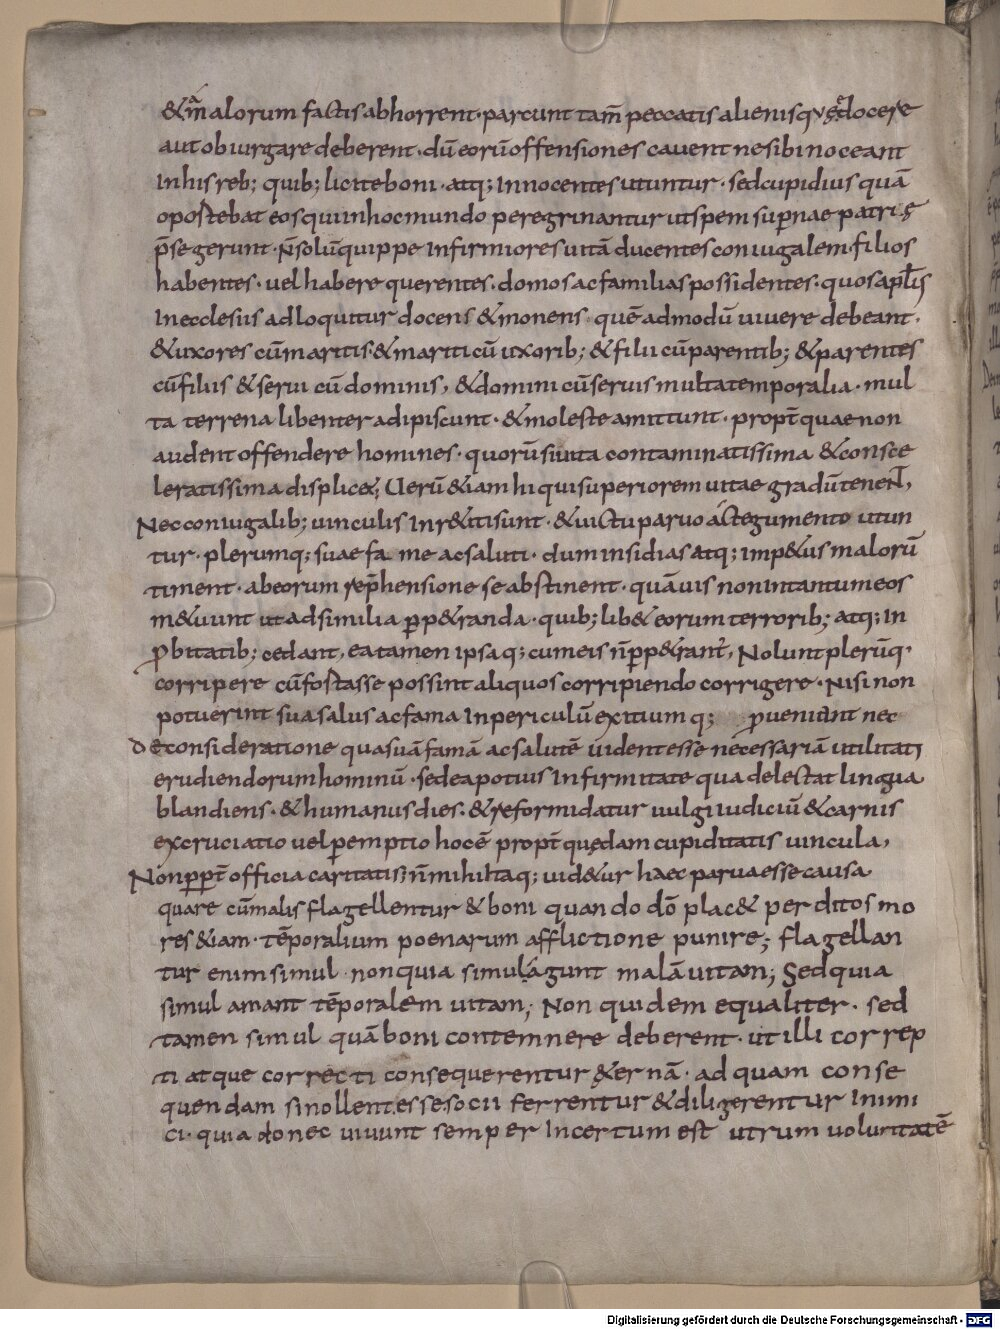 &a malorum factis abhorrent· parcunt tam̄ peccatis alienis quę docere
aut obiurgare deberent· dū eorū offensiones cauent ne sibi noceant
In his reb; quib; licite boni· atq; Innocentes utuntur· sed cupidius quā
oportebat eos qui in hoc mundo peregrinantur ut spem supernae patrię
p̄se gerunt· N̄ solū quippe Infirmiores uitā ducentes coniugalem· filios
habentes· uel habere querentes· domos ac familias possidentes· quos apl̄s
In ecclesiis adloquitur docens & monens· quē admodū uiuere debeant·
& uxores cū maritis & mariti cū uxorib; & filii cū parentib; & parentes
cū filiis & serui cū dominis, & domini cū seruis multa temporalia· mul
ta terrena libenter adipiscunt· & moleste amittunt· propt̄ quae non
audent offendere homines· quorū sibi uita contaminatissima & consce
leratissima displic&; Uerū &iam hi qui superiorem uitae gradū tenent,
Nec coniugalib; uinculis Inr&iti sunt· & uictu paruo ac tegumento utun
tur· plerumq; suae fa me ac saluti· dum insidias atq; imp&us malorū
timent· ab eorum rep̄hensione se abstinent· quāuis non in tantum eos
m&uunt ut ad similia perp&randa· quib;lib& eorum terrorib; atq; In
probitatib; cedant, ea tamen ipsa q; cum eis n̄ perp&rant, Nolunt plerūq·
corripere cū fortasse possint aliquos corripiendo corrigere· Nisi non
potuerint sua salus ac fama In periculū exitium q; proueniant nec
de consideratione qua suā famā ac salutē uident esse necessariā utilitati
erudiendorum hominū· sed ea potius Infirmitate qua delectat lingua
blandiens· & humanus dies· & reformidatur uulgi iudiciū & carnis
excruciatio uel peremptio hoc ē propt̄ quędam cupiditatis uincula,
Non propt̄ officia caritatis; n̄ mihi Itaq; uid&ur haec parua esse causa
quare cū malis flagellentur & boni quando dō plac& perditos mo
res &iam· tēporalium poenarum afflictione punire; flagellan
tur enim simul· non quia simul agunt malā uitam; Sed quia
simul amant tēporalem uitam; Non quidem equaliter· sed
tamen simul quā boni contemnere deberent· ut illi correp
ti atque correcti consequerentur &ernā· ad quam conse
quendam si nollent esse socii ferrentur & diligerentur Inimi
ci· quia donec uiuunt semper Incertum est utrum uoluntatē
Digitalisierung gefördert durch die Deutsche Forschungsgemeinschaft - DFG